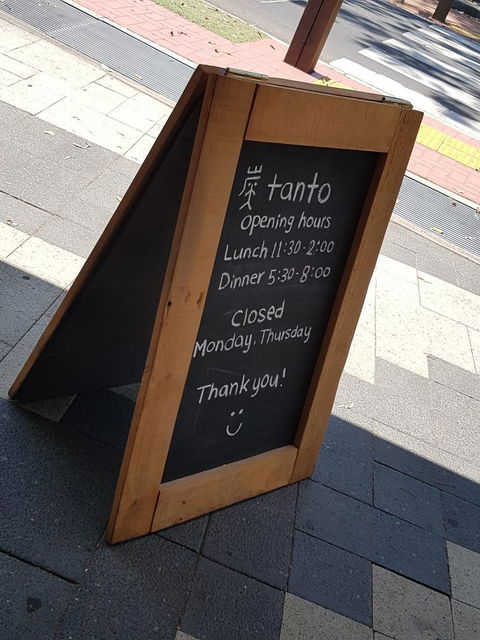 炭 tanto
opening hours
Lunch 11:30-2:00
Dinner 5:30-8:00
Closed
Monday, Thursday
Thank you!